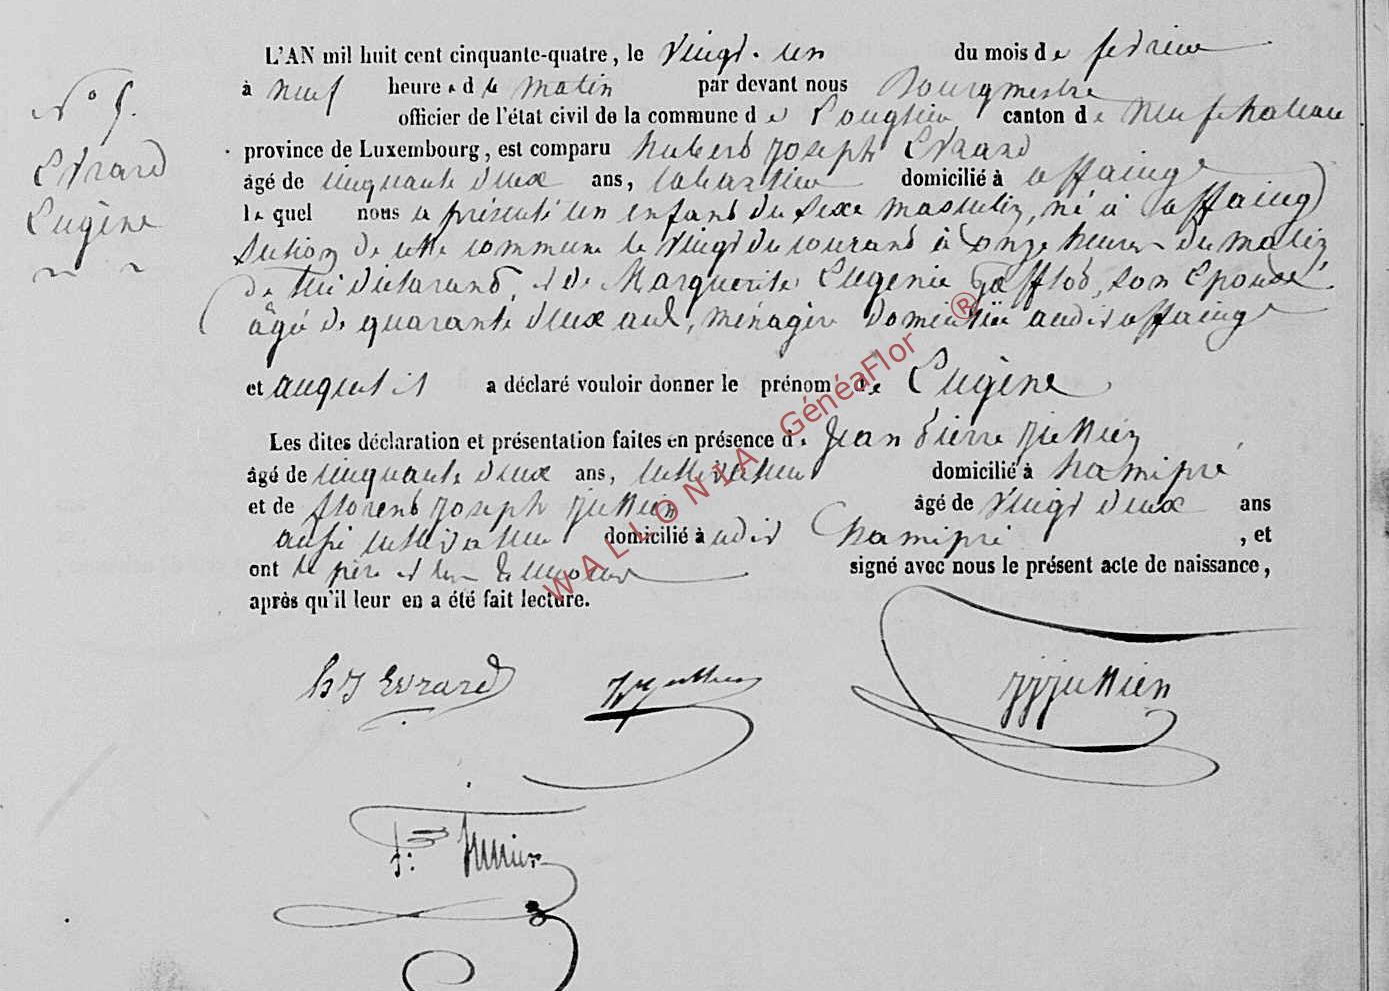 L'AN mil huit cent cinquante-quatre, le Vingt-un du mois de fevrier
à neuf heures du matin par devant nous Bourgmestre
officier de l'état civil de la commune de Longlier canton de Neufchateau
N° 5.
province de Luxembourg, est comparu hubert joseph Evrard
Evrard
âgé de cinquante deux ans, cabartier domicilié à offaing
le quel nous a présenté un enfant du sexe masculin, né à offaing
Eugène
Section de cette commune le vingt du courant à onze heures du matin
de lui déclarant, et de Marguerite Eugenie son Epouse
âgée de quarante deux ans, ménagère domiciliée audit offaing
et auquel il a déclaré vouloir donner le prénom de Eugène
Les dites déclaration et présentation faites en présence de Jean Pierre jullien
âgé de cinquante deux ans, cultivateur domicilié à hamipré
et de florent joseph jullien âgé de Vingt deux ans
aussi cultivateur domicilié à udit hamipré, et
ont le père et les temoins signé avec nous le présent acte de naissance,
après qu'il leur en a été fait lecture.
WALLONIA GénéaFlor ®
h J Evrard jpjullien